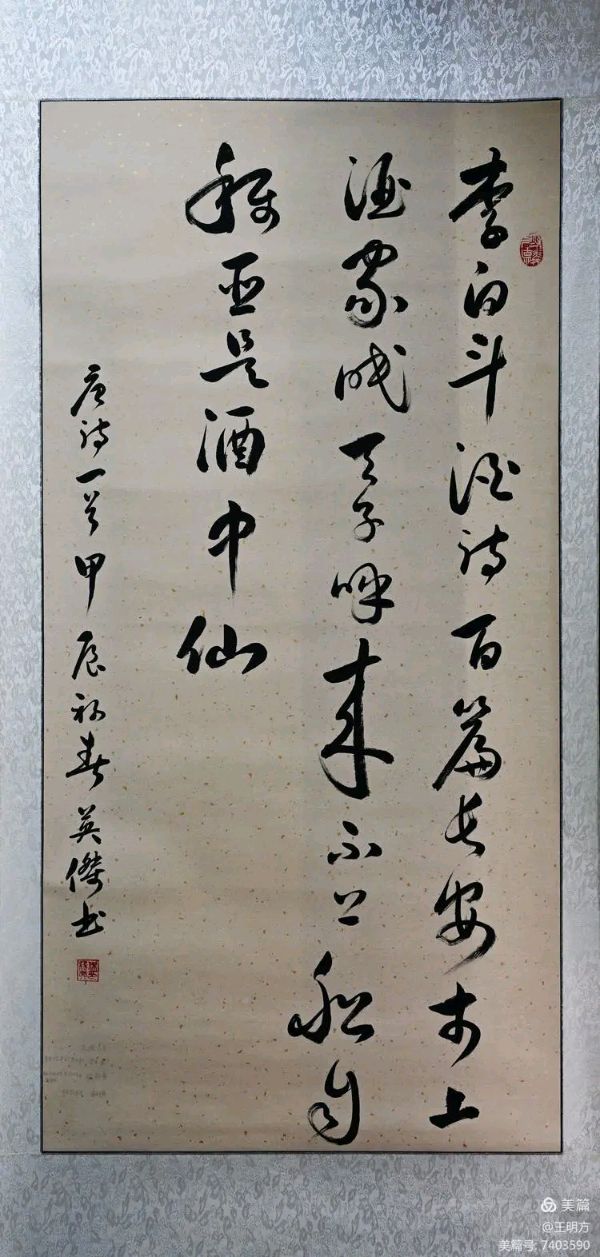 李白斗酒诗百篇长安市上
酒家眠天子呼来不上船自
称臣是酒中仙
唐诗一首甲辰初春英傑书
美篇
@王明方
美篇号: 7403590